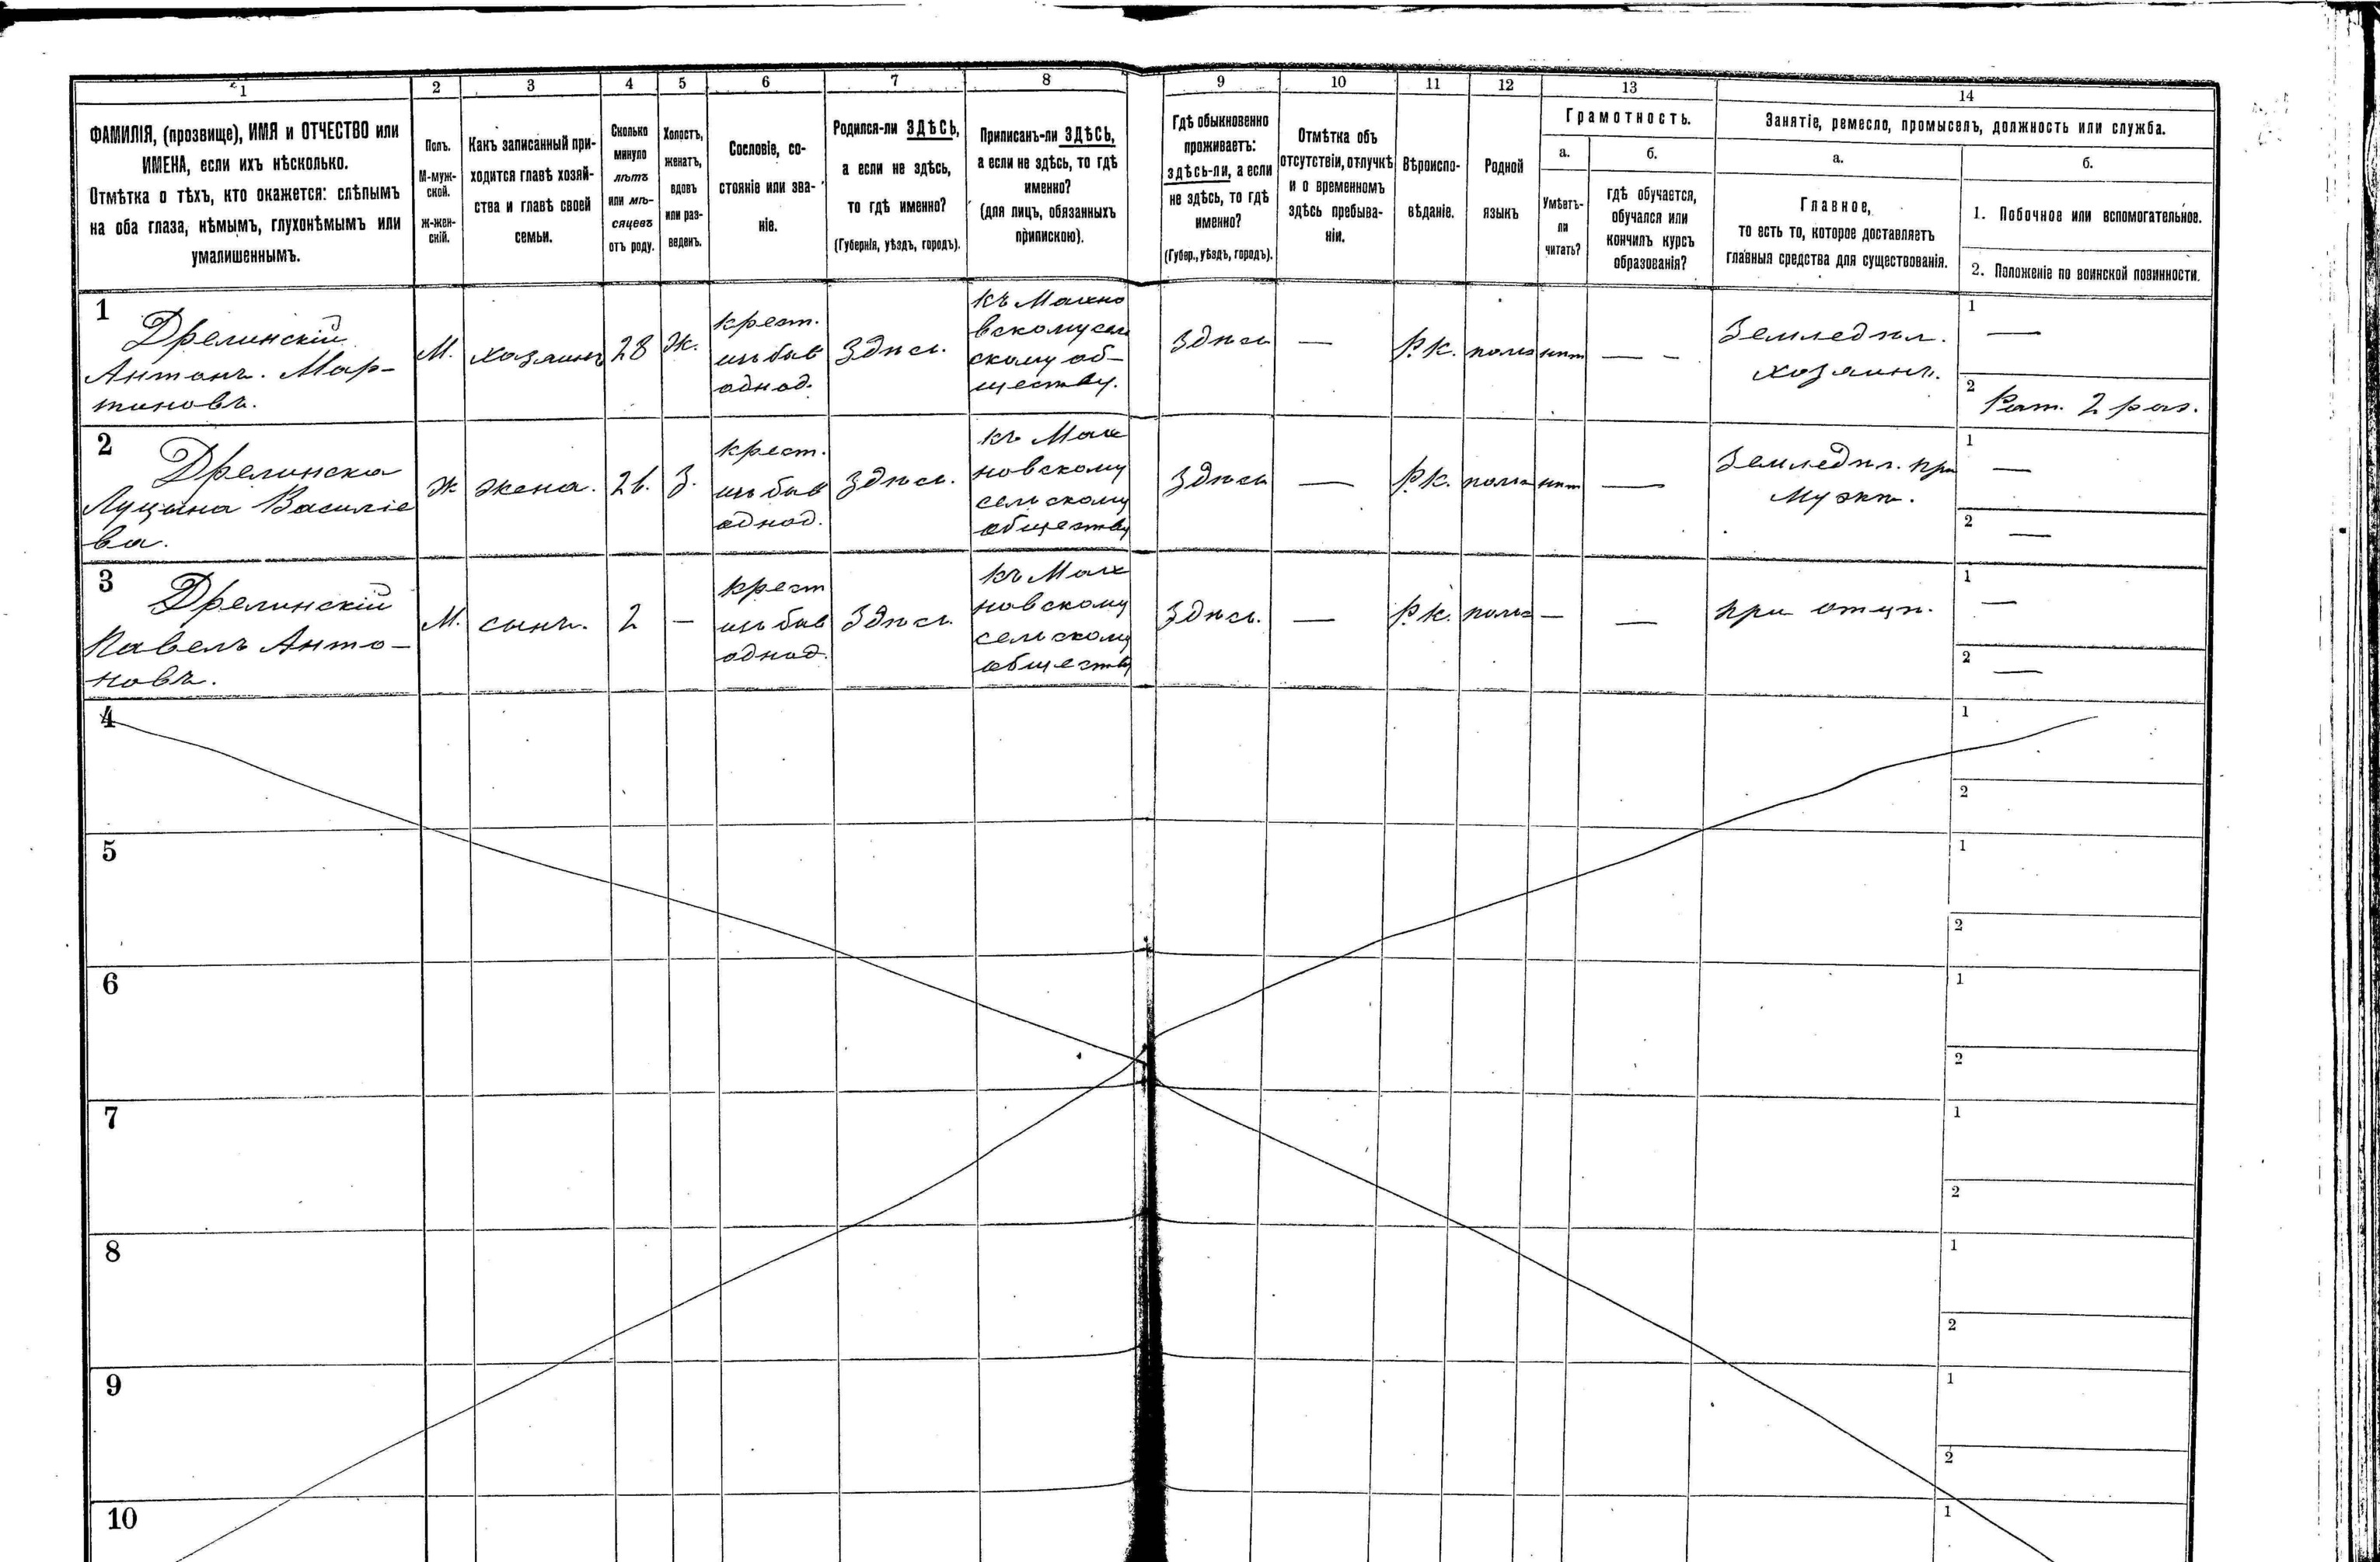 1
2
3
4
5
6
7
8
9
10
11
12
13
14
ФАМИЛІЯ, (прозвище), ИМЯ и ОТЧЕСТВО или
ИМЕНА, если ихъ нѣсколько.
Отмѣтка о тѣхъ, кто окажется: слѣпымъ
на оба глаза, нѣмымъ, глухонѣмымъ или
умалишеннымъ.
Полъ.
М-муж-
ской.
Ж-жен-
скій.
Какъ записанный при-
ходится главѣ хозяй-
ства и главѣ своей
семьи.
Сколько
минуло
лѣтъ
или мѣ-
сяцевъ
отъ роду.
Холостъ,
женатъ,
вдовъ
или раз-
веденъ.
Сословіе, со-
стояніе или зва-
ніе.
Родился-ли ЗДѢСЬ,
а если не здѣсь,
то гдѣ именно?
(Губернія, уѣздъ, городъ).
Приписанъ-ли ЗДѢСЬ,
а если не здѣсь, то гдѣ
именно?
(для лицъ, обязанныхъ
припискою).
Гдѣ обыкновенно
проживаетъ:
здѣсь-ли, а если
не здѣсь, то гдѣ
именно?
(Губер., уѣздъ, городъ).
Отмѣтка объ
отсутствіи, отлучкѣ
и о временномъ
здѣсь пребыва-
ніи.
Вѣроиспо-
вѣданіе.
Родной
языкъ
Грамотность.
а.
Умѣетъ-
ли
читать?
б.
гдѣ обучается,
обучался или
кончилъ курсъ
образованія?
Занятіе, ремесло, промыселъ, должность или служба.
а.
Главное,
то есть то, которое доставляетъ
главныя средства для существованія.
б.
1. Побочное или вспомогательное.
2. Положеніе по воинской повинности.
1
Дрелинскій
Антонъ. Мар-
тиновъ.
М.
хозяинъ
28
Ж.
крест.
изъ быв
однод.
Здѣсь.
къ Махно
вскому сель
скому об-
ществу.
Здѣсь
—
Р.К.
польс
нѣт
— -
Земледѣл.
хозяинъ.
1
—
2
Рат. 2 раз.
2
Дрелинска
Луцина Василіе
ва.
Ж
жена.
26.
З.
крест.
изъ быв
однод.
Здѣсь.
къ Мах
новскому
сельскому
обществу
Здѣсь
—
Р.К.
польс
нѣт
—
Земледѣл. при
Мужѣ.
1
—
2
—
3
Дрелинскій
Павелъ Анто-
новъ.
М.
сынъ.
2
—
крест
изъ быв
однод.
Здѣсь.
къ Мах
новскому
сельскому
обществу
Здѣсь.
—
Р.К.
польс
—
—
при отцѣ.
1
—
2
—
4
1
2
5
1
2
6
1
2
7
1
2
8
1
2
9
1
2
10
1